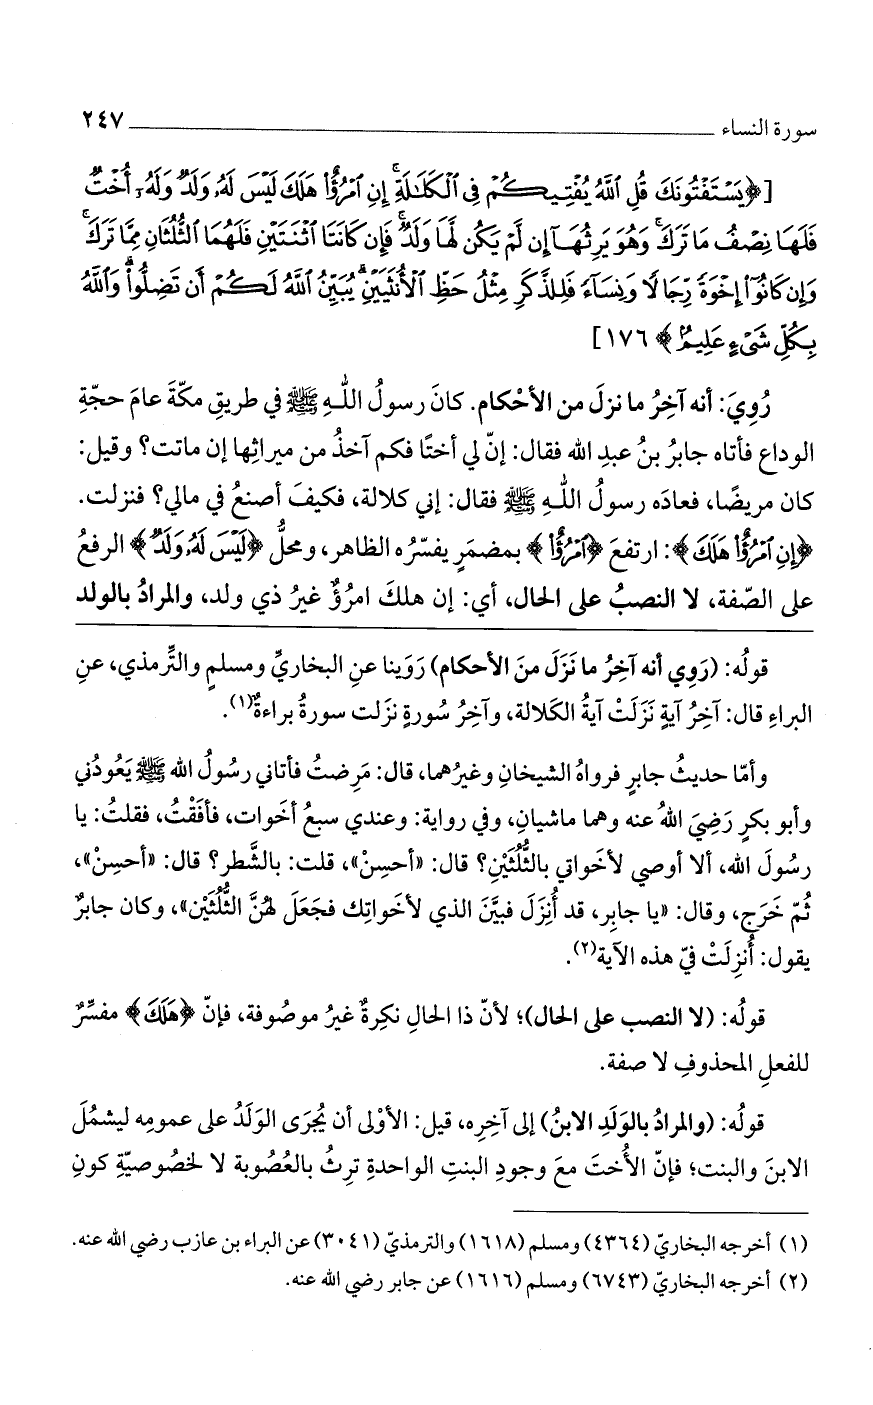 سورة النساء ٢٤٧
[﴿يَسْتَفْتُونَكَ قُلِ ٱللَّهُ يُفْتِيكُمْ فِى ٱلْكَلَـٰلَةِ ۚ إِنِ ٱمْرُؤٌا۟ هَلَكَ لَيْسَ لَهُۥ وَلَدٌ وَلَهُۥٓ أُخْتٌ
فَلَهَا نِصْفُ مَا تَرَكَ ۚ وَهُوَ يَرِثُهَآ إِن لَّمْ يَكُن لَّهَا وَلَدٌ ۚ فَإِن كَانَتَا ٱثْنَتَيْنِ فَلَهُمَا ٱلثُّلُثَانِ مِمَّا تَرَكَ ۚ
وَإِن كَانُوٓا۟ إِخْوَةً رِّجَالًا وَنِسَآءً فَلِلذَّكَرِ مِثْلُ حَظِّ ٱلْأُنثَيَيْنِ ۗ يُبَيِّنُ ٱللَّهُ لَكُمْ أَن تَضِلُّوا۟ ۗ وَٱللَّهُ
بِكُلِّ شَىْءٍ عَلِيمٌۢ﴾ ١٧٦]
رُوِيَ: أنه آخِرُ ما نزلَ من الأحْكام. كانَ رسولُ اللهِ ﷺ في طريقِ مكّةَ عامَ حجّةِ
الوداع فأتاه جابرُ بنُ عبدِ الله فقال: إنّ لي أختًا فكم آخذُ من ميراثِها إن ماتت؟ وقيل:
كان مريضًا، فعادَه رسولُ اللهِ ﷺ فقال: إني كلالة، فكيفَ أصنعُ في مالي؟ فنزلت.
﴿إِنِ ٱمْرُؤٌا۟ هَلَكَ﴾: ارتفعَ ﴿ٱمْرُؤٌا۟﴾ بمضمَرٍ يفسّرُه الظاهر، ومحلُّ ﴿لَيْسَ لَهُۥ وَلَدٌ﴾ الرفعُ
على الصّفة، لا النصبُ على الحال، أي: إن هلكَ امرُؤٌ غيرُ ذي ولد، والمرادُ بالولد
قولُه: (رَوِي أنه آخِرُ ما نَزَلَ منَ الأحكام) رَوَينا عن البخاريِّ ومسلمٍ والتِّرمذي، عنِ
البراءِ قال: آخِرُ آيةٍ نَزَلَتْ آيةُ الكَلالة، وآخِرُ سُورةٍ نزَلت سورةُ براءةٌ(١).
وأمّا حديثُ جابرٍ فرواهُ الشيخانِ وغيرُهما، قال: مَرِضتُ فأتاني رسُولُ الله ﷺ يَعُودُني
وأبو بكرٍ رَضِيَ اللهُ عنه وهما ماشيانِ، وفي رواية: وعندي سبعُ أخَوات، فأفَقْتُ، فقلتُ: يا
رسُولَ الله، ألا أوصي لأخَواتي بالثُّلُثَيْنِ؟ قال: «أحسِنْ»، قلت: بالشَّطر؟ قال: «أحسِنْ»،
ثُمّ خَرَج، وقال: «يا جابِر، قد أُنزِلَ فبيَّنَ الذي لأخَواتِك فجَعَلَ لهُنَّ الثُّلُثَيْن»، وكان جابرٌ
يقول: أُنزِلَتْ فيّ هذه الآية(٢).
قولُه: (لا النصب على الحال)؛ لأنّ ذا الحالِ نكِرةٌ غيرُ موصُوفة، فإنّ ﴿هَلَكَ﴾ مفسِّرٌ
للفعلِ المحذوفِ لا صفة.
قولُه: (والمرادُ بالوَلَدِ الابنُ) إلى آخِرِه، قيل: الأوْلى أن يُجرَى الوَلَدُ على عمومِه ليشمُلَ
الابنَ والبنت؛ فإنّ الأُختَ معَ وجودِ البنتِ الواحدةِ ترِثُ بالعُصُوبة لا لخصُوصيّةِ كونِ
(١) أخرجه البخاريّ (٤٣٦٤) ومسلم (١٦١٨) والترمذيّ (٣٠٤١) عن البراء بن عازب رضي الله عنه.
(٢) أخرجه البخاريّ (٦٧٤٣) ومسلم (١٦١٦) عن جابر رضي الله عنه.